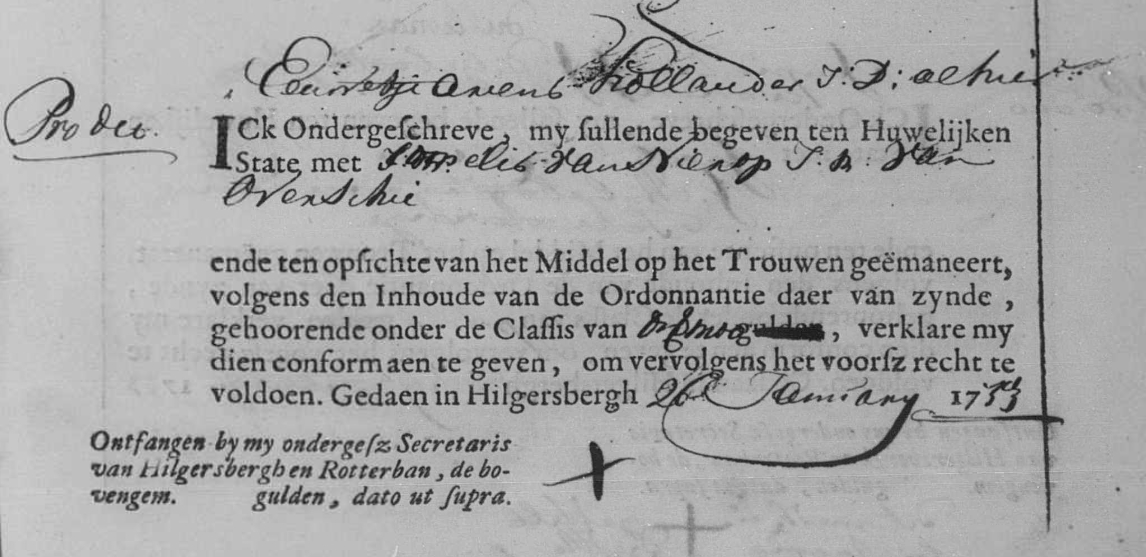 Arens Hollander J: D: alhier
Pro deo.
ICk Ondergeſchreve, my ſullende begeven ten Huwelijken
State met van Nierop J. M. van
Overschie
ende ten opſichte van het Middel op het Trouwen geëmaneert,
volgens den Inhoude van de Ordonnantie daer van zynde,
gehoorende onder de Claſſis van onvermogen, verklare my
dien conform aen te geven, om vervolgens het voorſz recht te
voldoen. Gedaen in Hilgersbergh 26e January 1753
Ontfangen by my ondergeſz Secretaris
van Hilgersbergh en Rotterban, de bo-
vengem. gulden, dato ut ſupra.